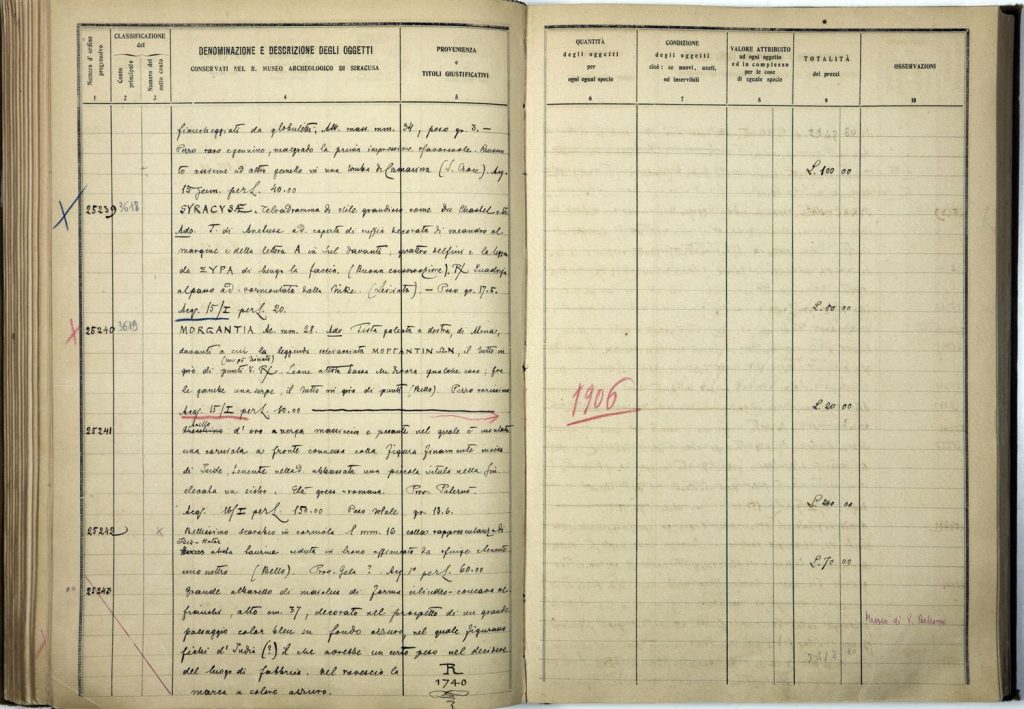 Numero d'ordine progressivo
CLASSIFICAZIONE del
Conto principale
Numero del sotto conto
DENOMINAZIONE E DESCRIZIONE DEGLI OGGETTI
CONSERVATI NEL R. MUSEO ARCHEOLOGICO DI SIRACUSA
PROVENIENZA
e
TITOLI GIUSTIFICATIVI
1 2 3 4 5
fiancheggiati da globuletti. Alt. mass. mm. 34, peso gr. 3. —
Pezzo raro e genuino, malgrado la prima impressione sfavorevole.
to assieme ad altro gemello in una tomba di Camarina (S. Croce). Acq.
15 Genn. per L. 40.00
25239 3618 SYRACUSÆ. Tetradramma di stile grandioso come Du Chastel
Ado. T. di Aretusa ad. coperta di cuffia decorata di meandro al
margine e della lettera A in sul davanti, quattro delfini e la leggen
da ΣΥΡΑ di lungo la faccia. (Buona conservazione). Rx Quadriga
al passo ad. sormontata dalla Nike. (Lisciata). — Peso gr. 17.5.
Acq. 15/I per L. 20.
25240 3619 MORGANTIA Ae. mm. 28. Ado. Testa galeata a destra, di Atena,
davanti a cui la leggenda ΜΟΡΓΑΝΤΙΝΩΝ, il tutto in
giro di punti. Rx. Leone divora qualche cosa; fra
le gambe una serpe, il tutto in giro di punti (Bello). Pezzo rarissimo
Acq. 15/I per L. 80.00
25241 Anello d'oro a verga massiccia e pesante nel quale è montata
una corniola a fronte convessa colla figura finamente incisa
di Iside, tenente nella d. abbassata una piccola situla nella sin.
elevata un sistro. Età greco-romana. Prov. Palermo.
Acq. 16/I per L. 150.00 Peso totale gr. 13.6.
25242 X Bellissimo scarabeo in corniola l. mm. 16 colla rappresentanza di
seduta in trono affiancato da sfinge
(Bello). Prov. Gela? Acq. per L. 60.00
25243 Grande albarello di maiolica di forma cilindro-concava ai
fianchi, alto cm. 37, decorato nel prospetto di un grande
paesaggio color bleu in fondo azzurro, nel quale figurano
fichi d'India (?) il che avrebbe un certo peso nel decidere
del luogo di fabbrica. Nel rovescio la R
marca a colore azzurro. 1740
QUANTITÀ
degli oggetti
per
ogni egual specie
CONDIZIONE
degli oggetti
cioè: se nuovi, usati,
od inservibili
VALORE ATTRIBUITO
ad ogni oggetto
ed in complesso
per le cose
di eguale specie
TOTALITÀ
dei prezzi
OSSERVAZIONI
6 7 8 9 10
2942 80
L. 100 00
L. 80 00
1906
L. 20 00
L. 200 00
L. 70 00
Museo di P. Bellomo